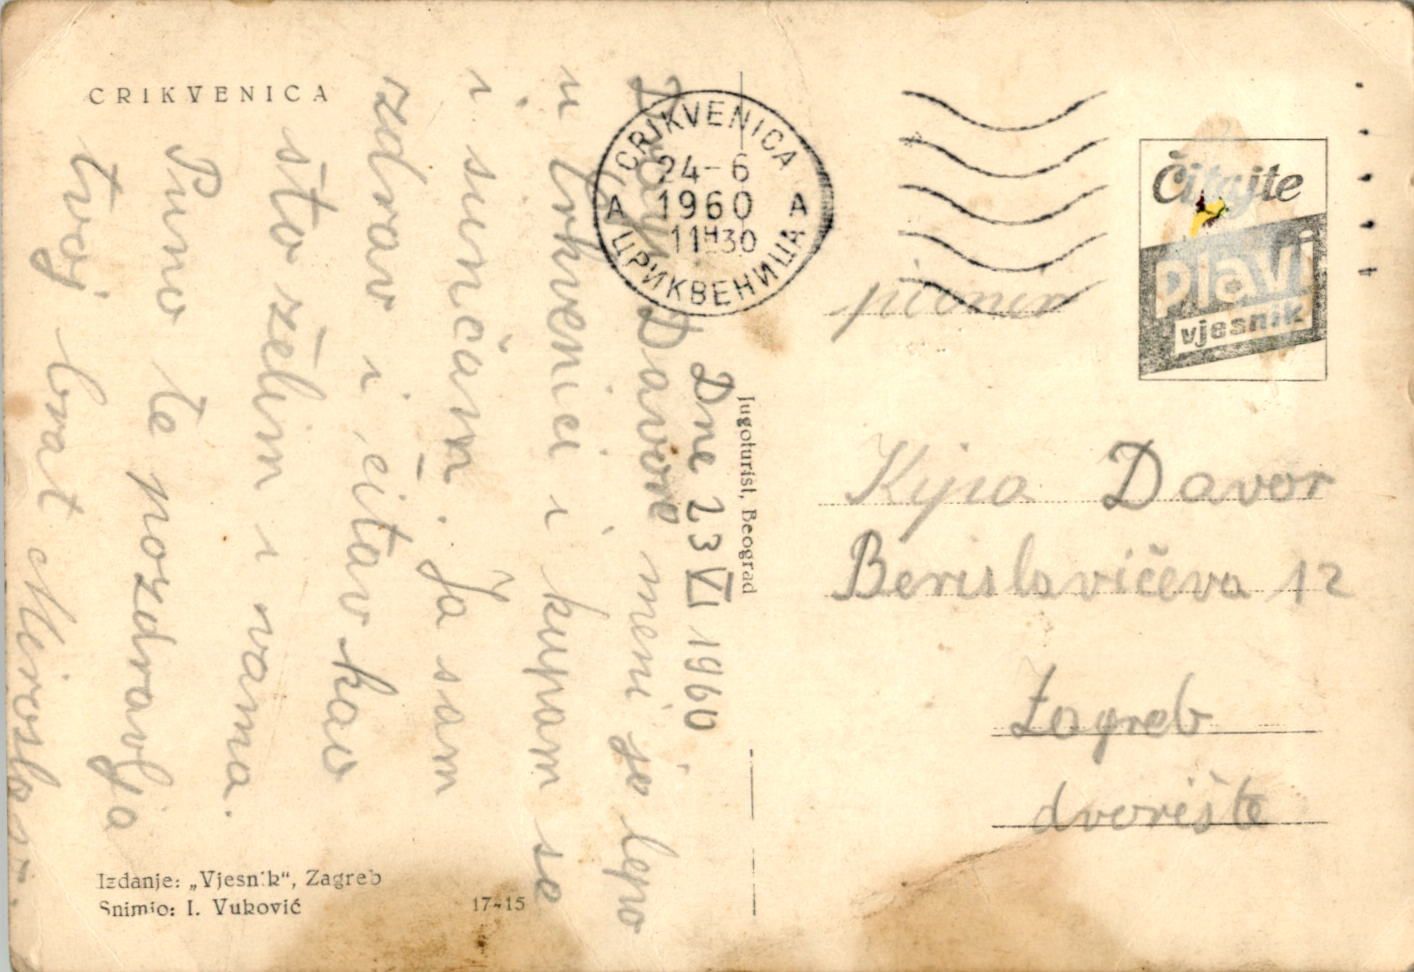 CRIKVENICA
Dne 23 VI 1960
Dragi Davore meni je lepo
u Crkvenici i kupam se
i sunčam. Ja sam
zdrav i čitav kao
što želim i vama.
Puno te pozdravlja
tvoj brat Miroslav.
Izdanje: „Vjesnik“, Zagreb
Snimio: I. Vuković
17-15
Jugoturist, Beograd
CRIKVENICA
24-6
1960
11H30
A A
ЦРИКВЕНИЦА
čitajte
plavi
vjesnik
pionir
Davor
Berislavićeva 12
Zagreb
dvorište